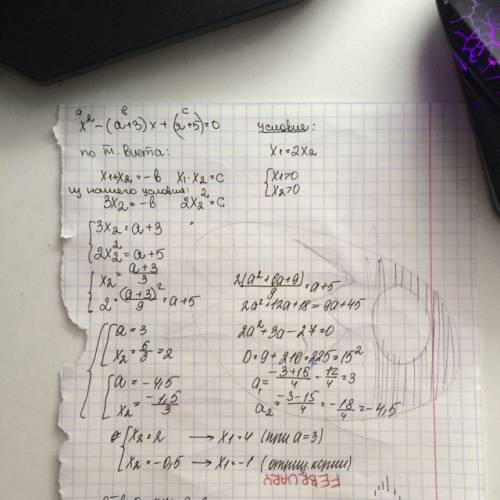 a в c
x² - (a+3)x + (a+5) = 0
условие:
по т. Виета:
x₁ = 2x₂
x₁+x₂ = -в x₁·x₂ = c
{x₁>0
x₂>0
из нашего условия:
3x₂ = -в 2x₂² = c
{3x₂ = a+3
2x₂² = a+5
{x₂ = (a+3)/3
2·(a+3)²/9 = a+5
2(a²+6a+9)/9 = a+5
2a²+12a+18 = 9a+45
2a²+3a-27=0
D = 9+216=225=15²
a₁ = (-3+15)/4 = 12/4 = 3
a₂ = (-3-15)/4 = -18/4 = -4,5
{a = 3
x₂ = 6/3 = 2
{a = -4,5
x₂ = -1,5/3
{x₂ = 2 → x₁ = 4 (при a=3)
x₂ = -0,5 → x₁ = -1 (отриц. корни)
FEBRUARY